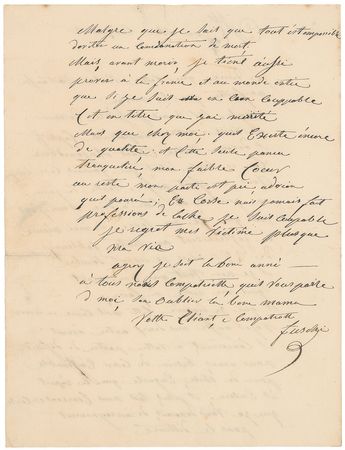 Malgre que je sait que tout est impossible
deviter un Condanation de mort
Mais avant morir je tient ausse
prover a la france et au monde entie
que si je suit un Coupable
C est un titre que jai merite
Mais que chez moi quil Existe encore
de qualite et Cette seule pансe
tranquelise mon faible Coeur
au reste mon parte est pri
quil poure, En Corse nous jamais fait
professions de lache je suit Coupable
je regret mes victime plusque
ma vie
je soit la bone anné
à tous nous Compatriotte quil vous parle
d moi san oublier la bone mama
Votre Compatriotte
fieschi